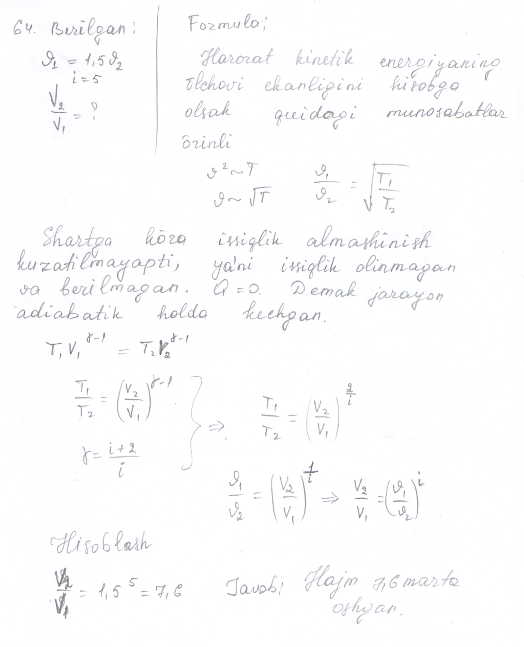 64. Berilgan:
ϑ₁ = 1,5ϑ₂
i = 5
V₂/V₁ = ?
Formula;
Harorat kinetik energiyaning
ölchovi ekanligini hisobga
olsak quidagi munosabatlar
örinli
ϑ² ~ T
ϑ ~ √T
ϑ₁/ϑ₂ = √(T₁/T₂)
Shartga köra issiqlik almashinish
kuzatilmayapti, ya'ni issiqlik olinmagan
va berilmagan. Q = 0. Demak jarayon
adiabatik holda kechgan.
T₁V₁^(γ-1) = T₂V₂^(γ-1)
T₁/T₂ = (V₂/V₁)^(γ-1)
γ = (i+2)/i
} ⇒ T₁/T₂ = (V₂/V₁)^(2/i)
ϑ₁/ϑ₂ = (V₂/V₁)^(1/i) ⇒ V₂/V₁ = (ϑ₁/ϑ₂)^i
Hisoblash
V₂/V₁ = 1,5⁵ = 7,6
Javob; Hajm 7,6 marta
oshgan.